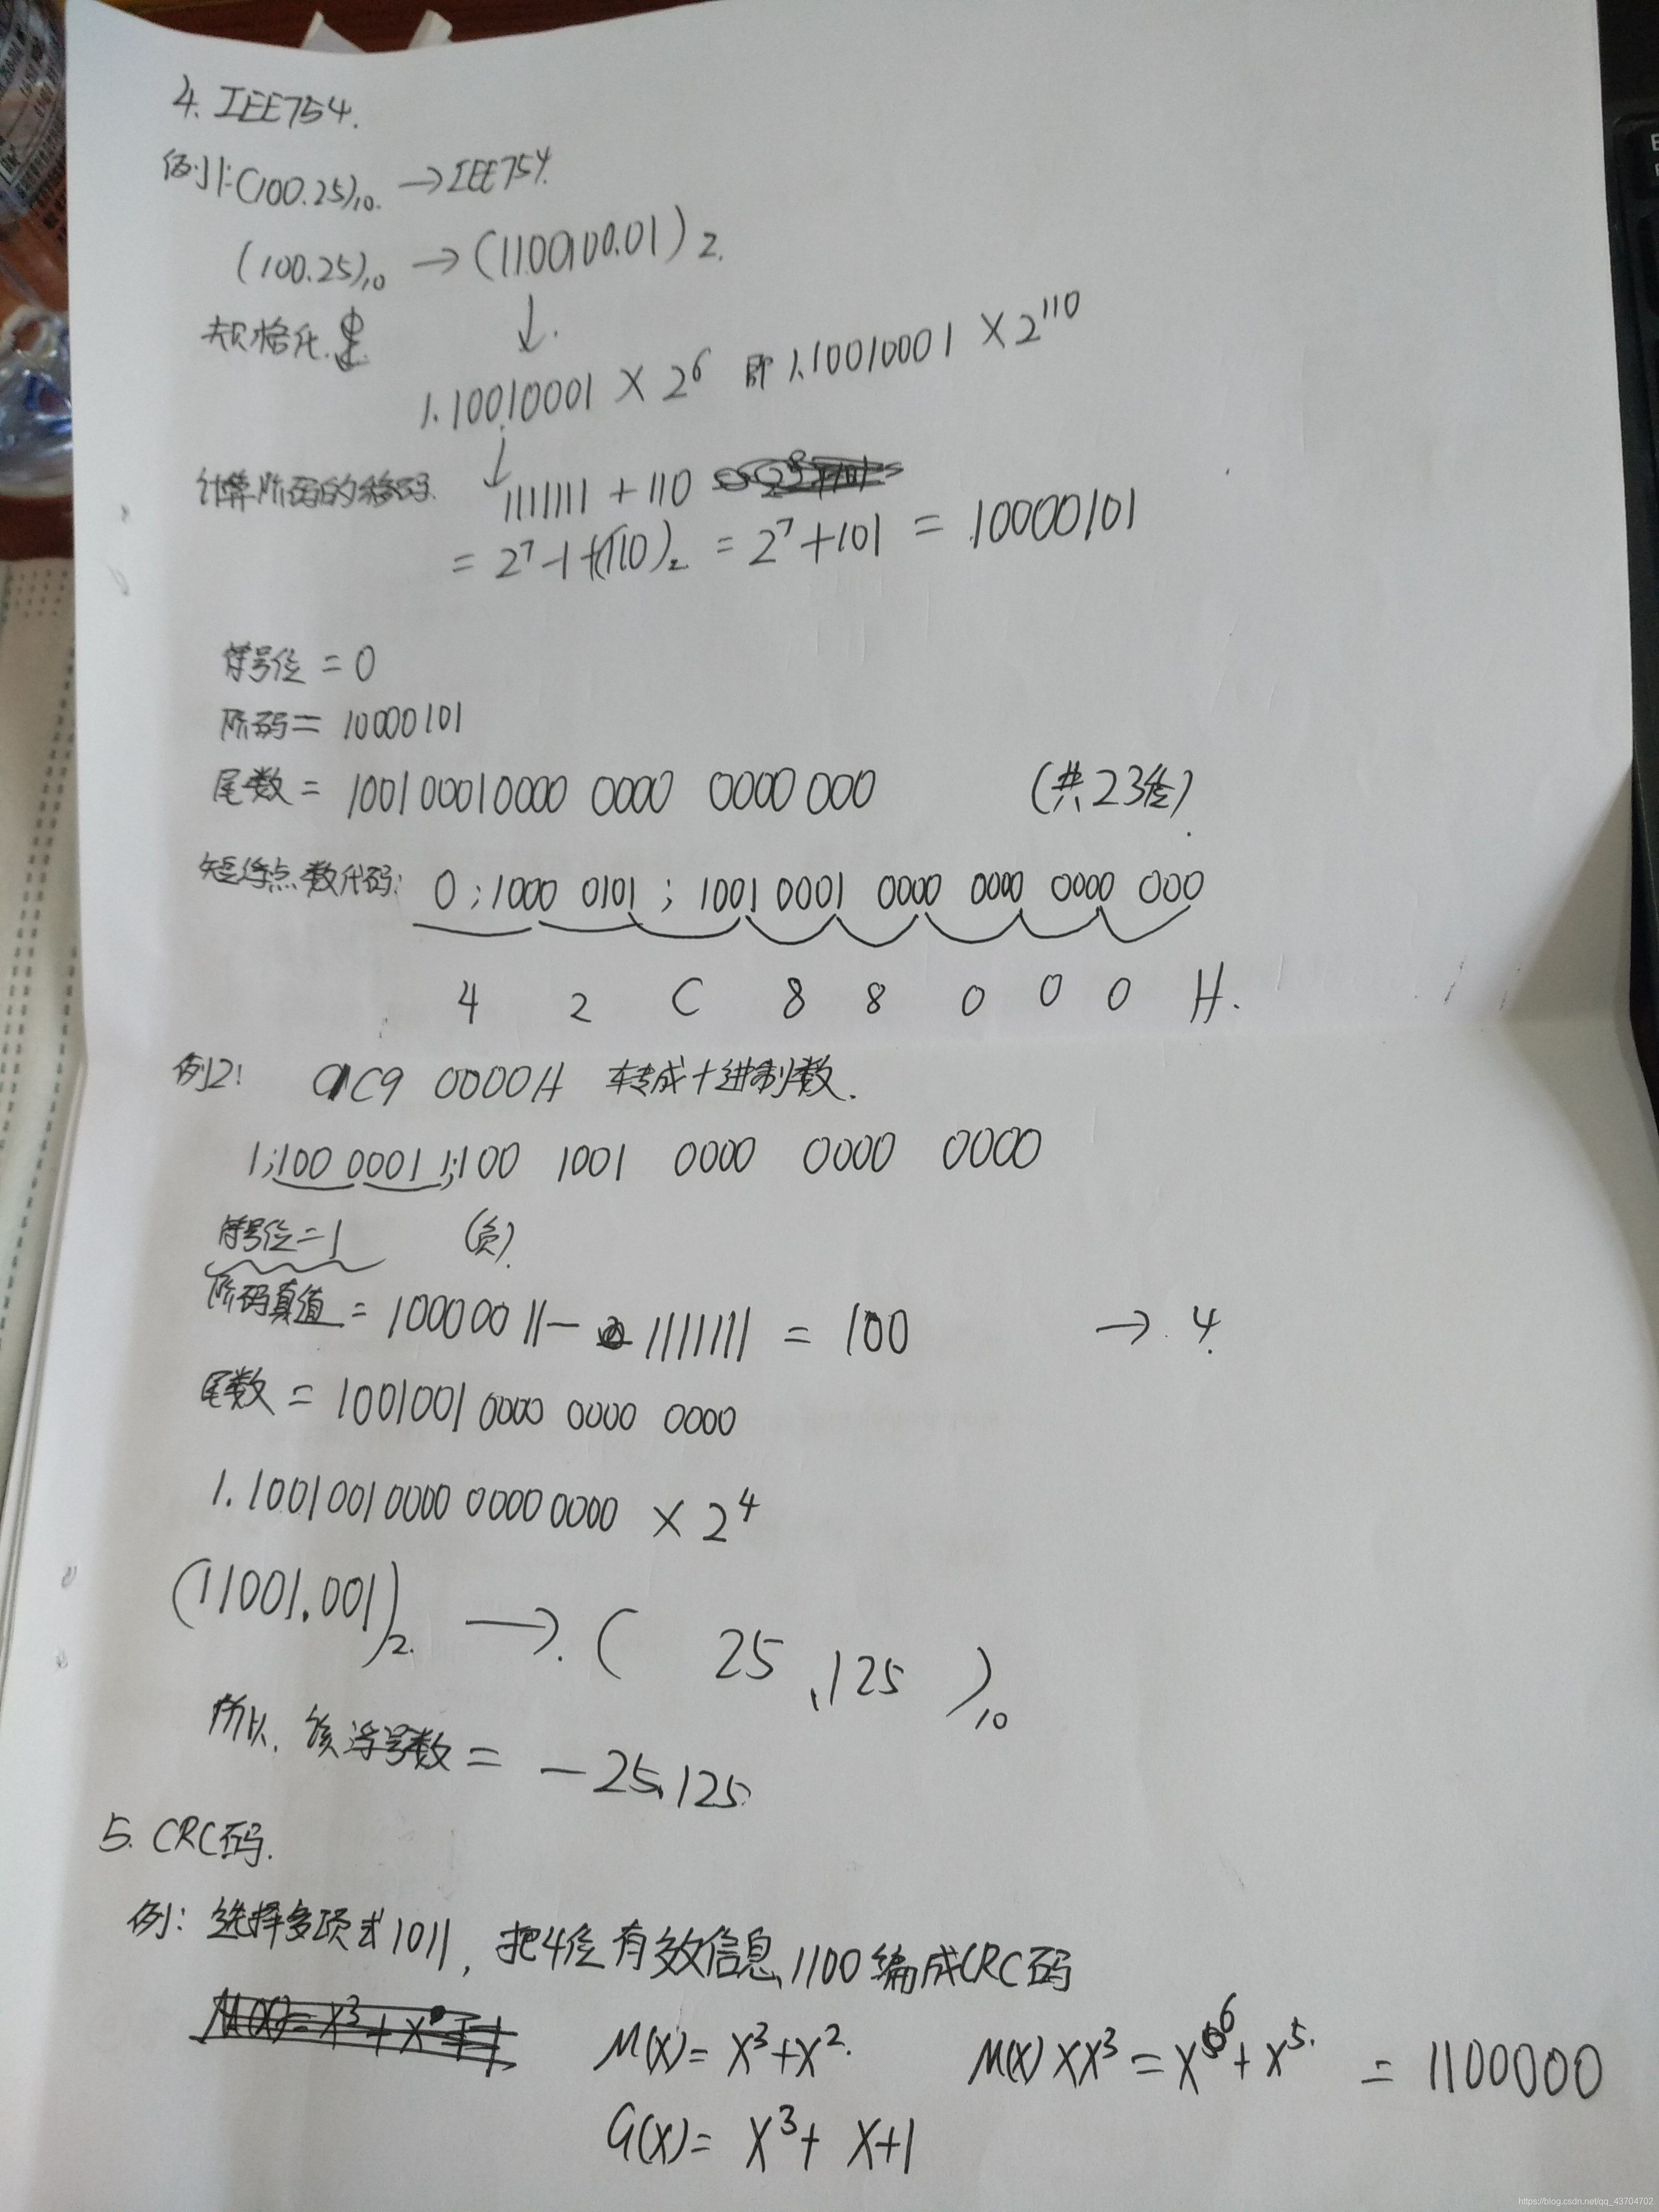 4. IEE754.
例1:(100.25)10. → IEE754.
(100.25)10 → (1100100.01)2.
规格化. ↓.
1.10010001 × 2^6 即 1.10010001 × 2^110
↓
计算阶码的移码. 1111111 + 110
= 2^7 -1 + (110)2 = 2^7 + 101 = 10000101
符号位 = 0
阶码 = 10000101
尾数 = 100100010000 0000 0000 000 (共23位).
短浮点数代码: 0 ; 1000 0101 ; 1001 0001 0000 0000 0000 000
4 2 C 8 8 0 0 0 H.
例2: C1C9 0000H 转成十进制数.
1;100 0001 1;100 1001 0000 0000 0000
符号位 = 1 (负).
阶码真值 = 10000011 - 1111111 = 100 → 4.
尾数 = 1001001 0000 0000 0000
1.1001001 0000 0000 0000 × 2^4
(11001.001)2. → (25.125)10
所以, 该浮号数 = -25.125.
5. CRC码.
例: 选择多项式1011, 把4位有效信息1100编成CRC码
M(X)= X^3+X^2. M(X)×X^3 = X^6+X^5. = 1100000
G(X)= X^3+ X+1
https://blog.csdn.net/qq_43704702